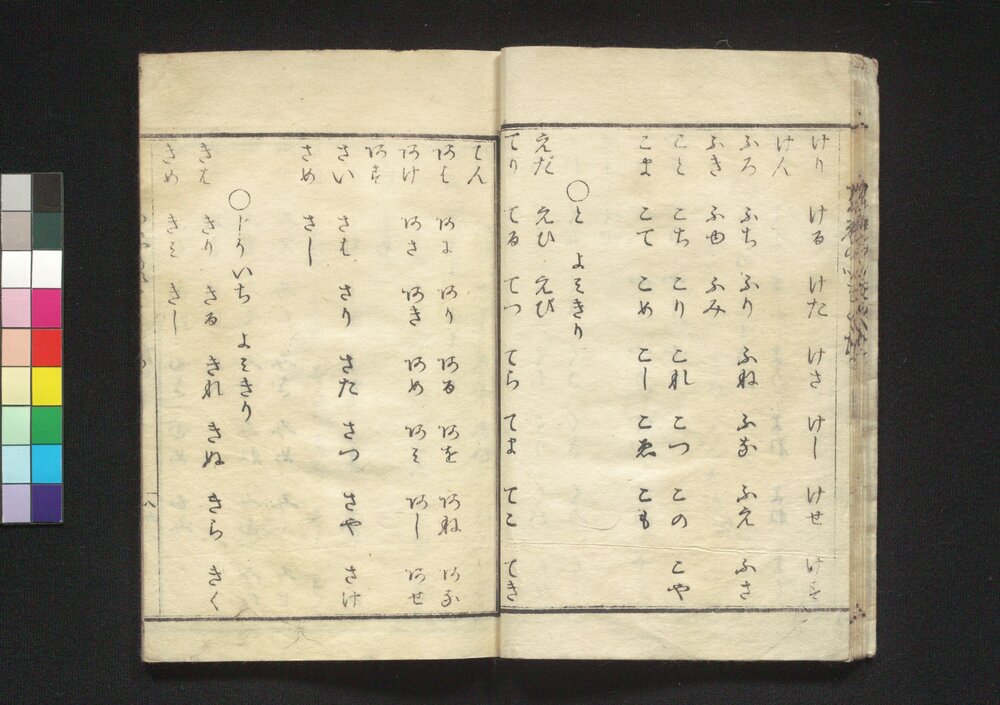 けり ける けた けさ けし けせ けす
けん
ふろ ふち ふり ふね ふな ふえ ふさ
ふき ふゆ ふみ
こと こち こり これ こつ この こや
こま こて こめ こし こゑ こも
○と よみきり
えだ えひ えび
てり てる てつ てら てま てこ てき
てん
あは あに あり ある あを あね あな
あけ あさ あき あめ あみ あし あせ
あす
さい さむ さり さた さつ さや さけ
さめ さし
○じりいち よみきり
きは きり きる きれ きぬ きら きく
きめ きみ きし